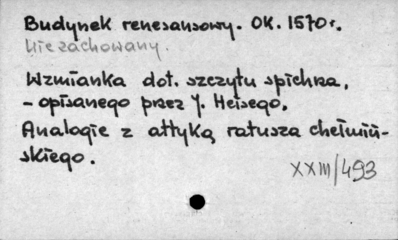 Budynek renesansowy. OK. 1570r.
Niezachowany.
Wzmianka dot. szczytu spichrza,
- opisanego przez J. Heisego.
Analogie z attyką ratusza chełmiń-
skiego.
XXIII/493